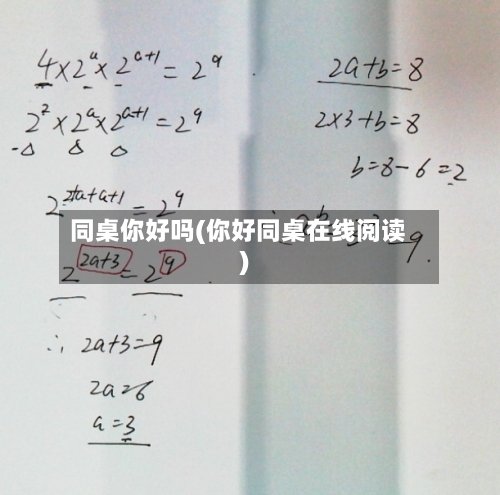 4×2^a×2^(a+1)=2^9
2^2×2^a×2^(a+1)=2^9
2^(2+a+a+1)=2^9
同桌你好吗(你好同桌在线阅读
)
2^(2a+3)=2^9
∴ 2a+3=9
2a=6
a=3
2a+b=8
2×3+b=8
b=8-6=2